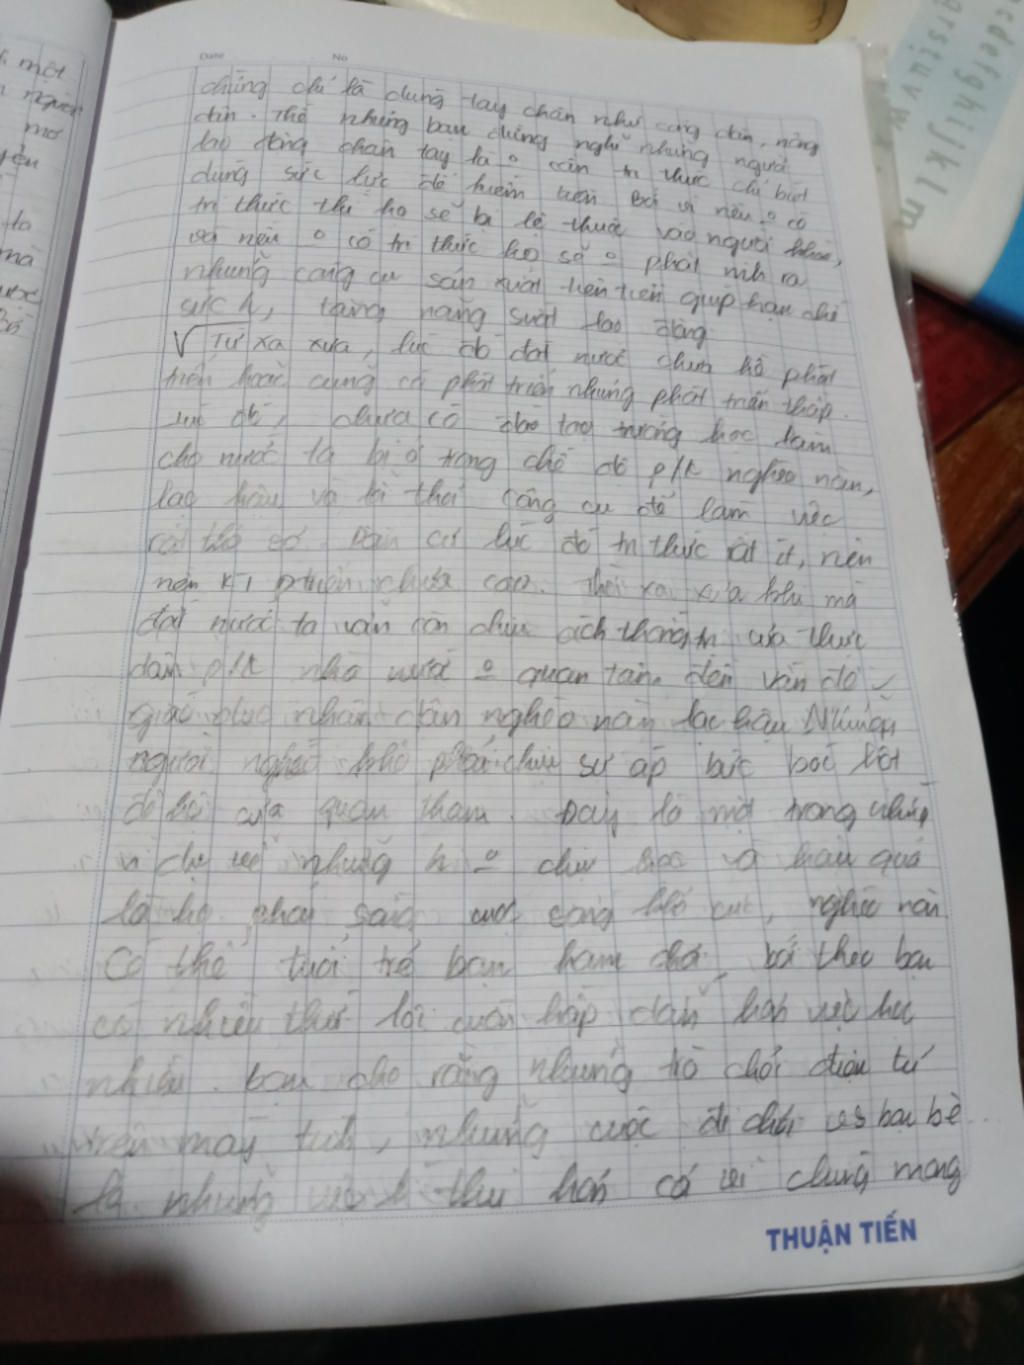 Date No
chúng chỉ là dùng tay chân như công dân, nông
dân. Thế nhưng bạn đừng nghĩ những người
lao động chân tay là o cần tri thức chỉ biết
dùng sức lực để kiếm tiền Bởi vì nếu o có
tri thức thì họ sẽ bị lệ thuộc vào người khác,
và nếu o có tri thức họ sẽ o phát minh ra
những công cụ sản xuất tiên tiến giúp hạn chế
sức h, tăng năng suất lao động
√ Từ xa xưa, lúc đó đất nước chưa hề phát
triển hoặc cũng có phát triển nhưng phát triển thấp.
Lúc đó, chưa có đào tạo trường học làm
cho nước ta bị ở trong chế độ p/k nghèo nàn,
lạc hậu và công cụ để làm việc
rất thô sơ. Dân cư lúc đó tri thức rất ít, nên
nên kĩ chưa cao. Thời xa xưa khi mà
đất nước ta vẫn còn chịu ách thống trị của thực
dân p/k nhà nước o quan tâm đến vấn đề
giáo dục nhân dân nghèo nàn lạc hậu Những
người nghèo khổ phải chịu sự áp bức bóc lột
của quan tham. Đây là một trong những
ví dụ về những h o chịu học và hậu quả
là họ phải sống cuộc sống khổ cực, nghèo nàn.
Có thể tuổi trẻ bạn ham chơi, bởi theo bạn
có nhiều thứ lôi cuốn hấp dẫn hơn việc học
nhiều. bạn cho rằng những trò chơi điện tử
trên máy tính, những cuộc đi chơi với bạn bè
là những thú hơn cả vì chúng mang
THUẬN TIẾN